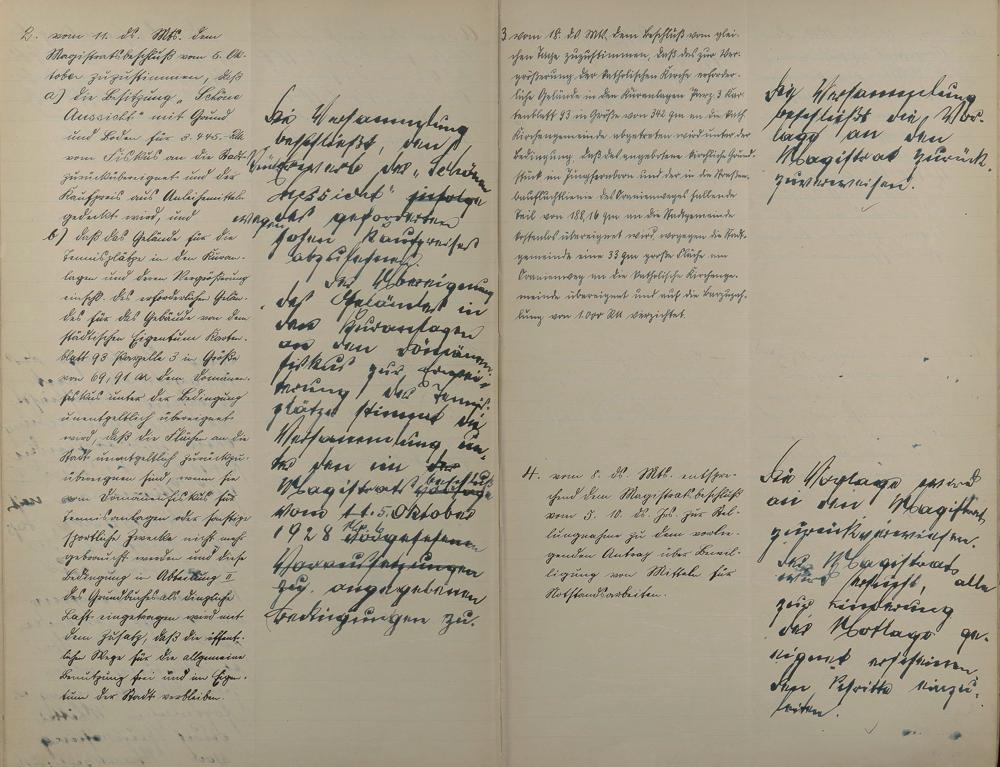 2. vom 11. ds. Mts. dem
Magistratsbeschluß vom 5. Ok-
tober zuzustimmen, daß
a) die Besitzung „Schöne
Aussicht" mit Grund
und Boden für 3.445.- RM
vom Fiskus an die Stadt
zurückübereignet und der
Kaufpreis aus Anleihemitteln
gedeckt wird, und
b) daß das Gelände für die
Tennisplätze in den Kuran-
lagen und deren Vergrößerung
einschl. des erforderlichen Gelän-
des für das Gebäude von dem
städtischen Eigentum Karten-
blatt 93 Parzelle 3 in Größe
von 69,91 ar dem Domänen-
fiskus unter der Bedingung
unentgeltlich übereignet
wird, daß die Flächen an die
Stadt unentgeltlich zurückzu-
übereignen sind, wenn sie
vom Domänenfiskus für
Tennisanlagen oder sonstige
sportliche Zwecke nicht mehr
gebraucht werden und diese
Bedingung in Abteilung II
des Grundbuches als dingliche
Last eingetragen wird mit
dem Zusatz, daß die öffent-
lichen Wege für die allgemeine
Benutzung frei und im Eigen-
tum der Stadt verbleiben.
Die Versammlung
beschließt, den
Rückerwerb der „Schönen
Aussicht" infolge
des geforderten
hohen Kaufpreises
abzulehnen.
Der Übereignung
des Geländes in
den Kuranlagen
an den Domänen-
fiskus zur Erwei-
terung der Tennis-
plätze stimmt die
Versammlung un-
ter den im
Magistratsbeschluß
vom 5. Oktober
1928
angegebenen
Bedingungen zu.
3 vom 18. ds Mts. dem Beschluß vom glei-
chen Tage zuzustimmen, daß das zur Ver-
größerung der katholischen Kirche erforder-
liche Gelände in den Kuranlagen Parz. 3 Kar-
tenblatt 93 in Größe von 342 qm an die kath.
Kirchengemeinde abgetreten wird unter der
Bedingung, daß das angebotene kirchliche Grund-
stück im Jungfernborn und der in die Straßen-
baufluchtlinie des Oranienweges fallende
Teil von 188,16 qm an die Stadtgemeinde
kostenlos übereignet wird, wogegen die Stadt-
gemeinde eine 33 qm große Fläche am
Oranienweg an die katholische Kirchenge-
meinde übereignet und auf die Barzuzah-
lung von 1000 RM verzichtet.
Die Versammlung
beschließt die Vor-
lage an den
Magistrat zurück-
zuverweisen.
4. vom 5. ds. Mts. entspre-
chend dem Magistratsbeschluß
vom 5. 10. ds. Js. zur Stel-
lungnahme zu dem vorlie-
genden Antrag über Bewil-
ligung von Mitteln für
Notstandsarbeiten.
Die Vorlage wird
an den Magistrat
zurückverwiesen.
Der Magistrat
wird ersucht, alle
zur Linderung
der Notlage ge-
eignet erscheinen-
den Schritte einzu-
leiten.